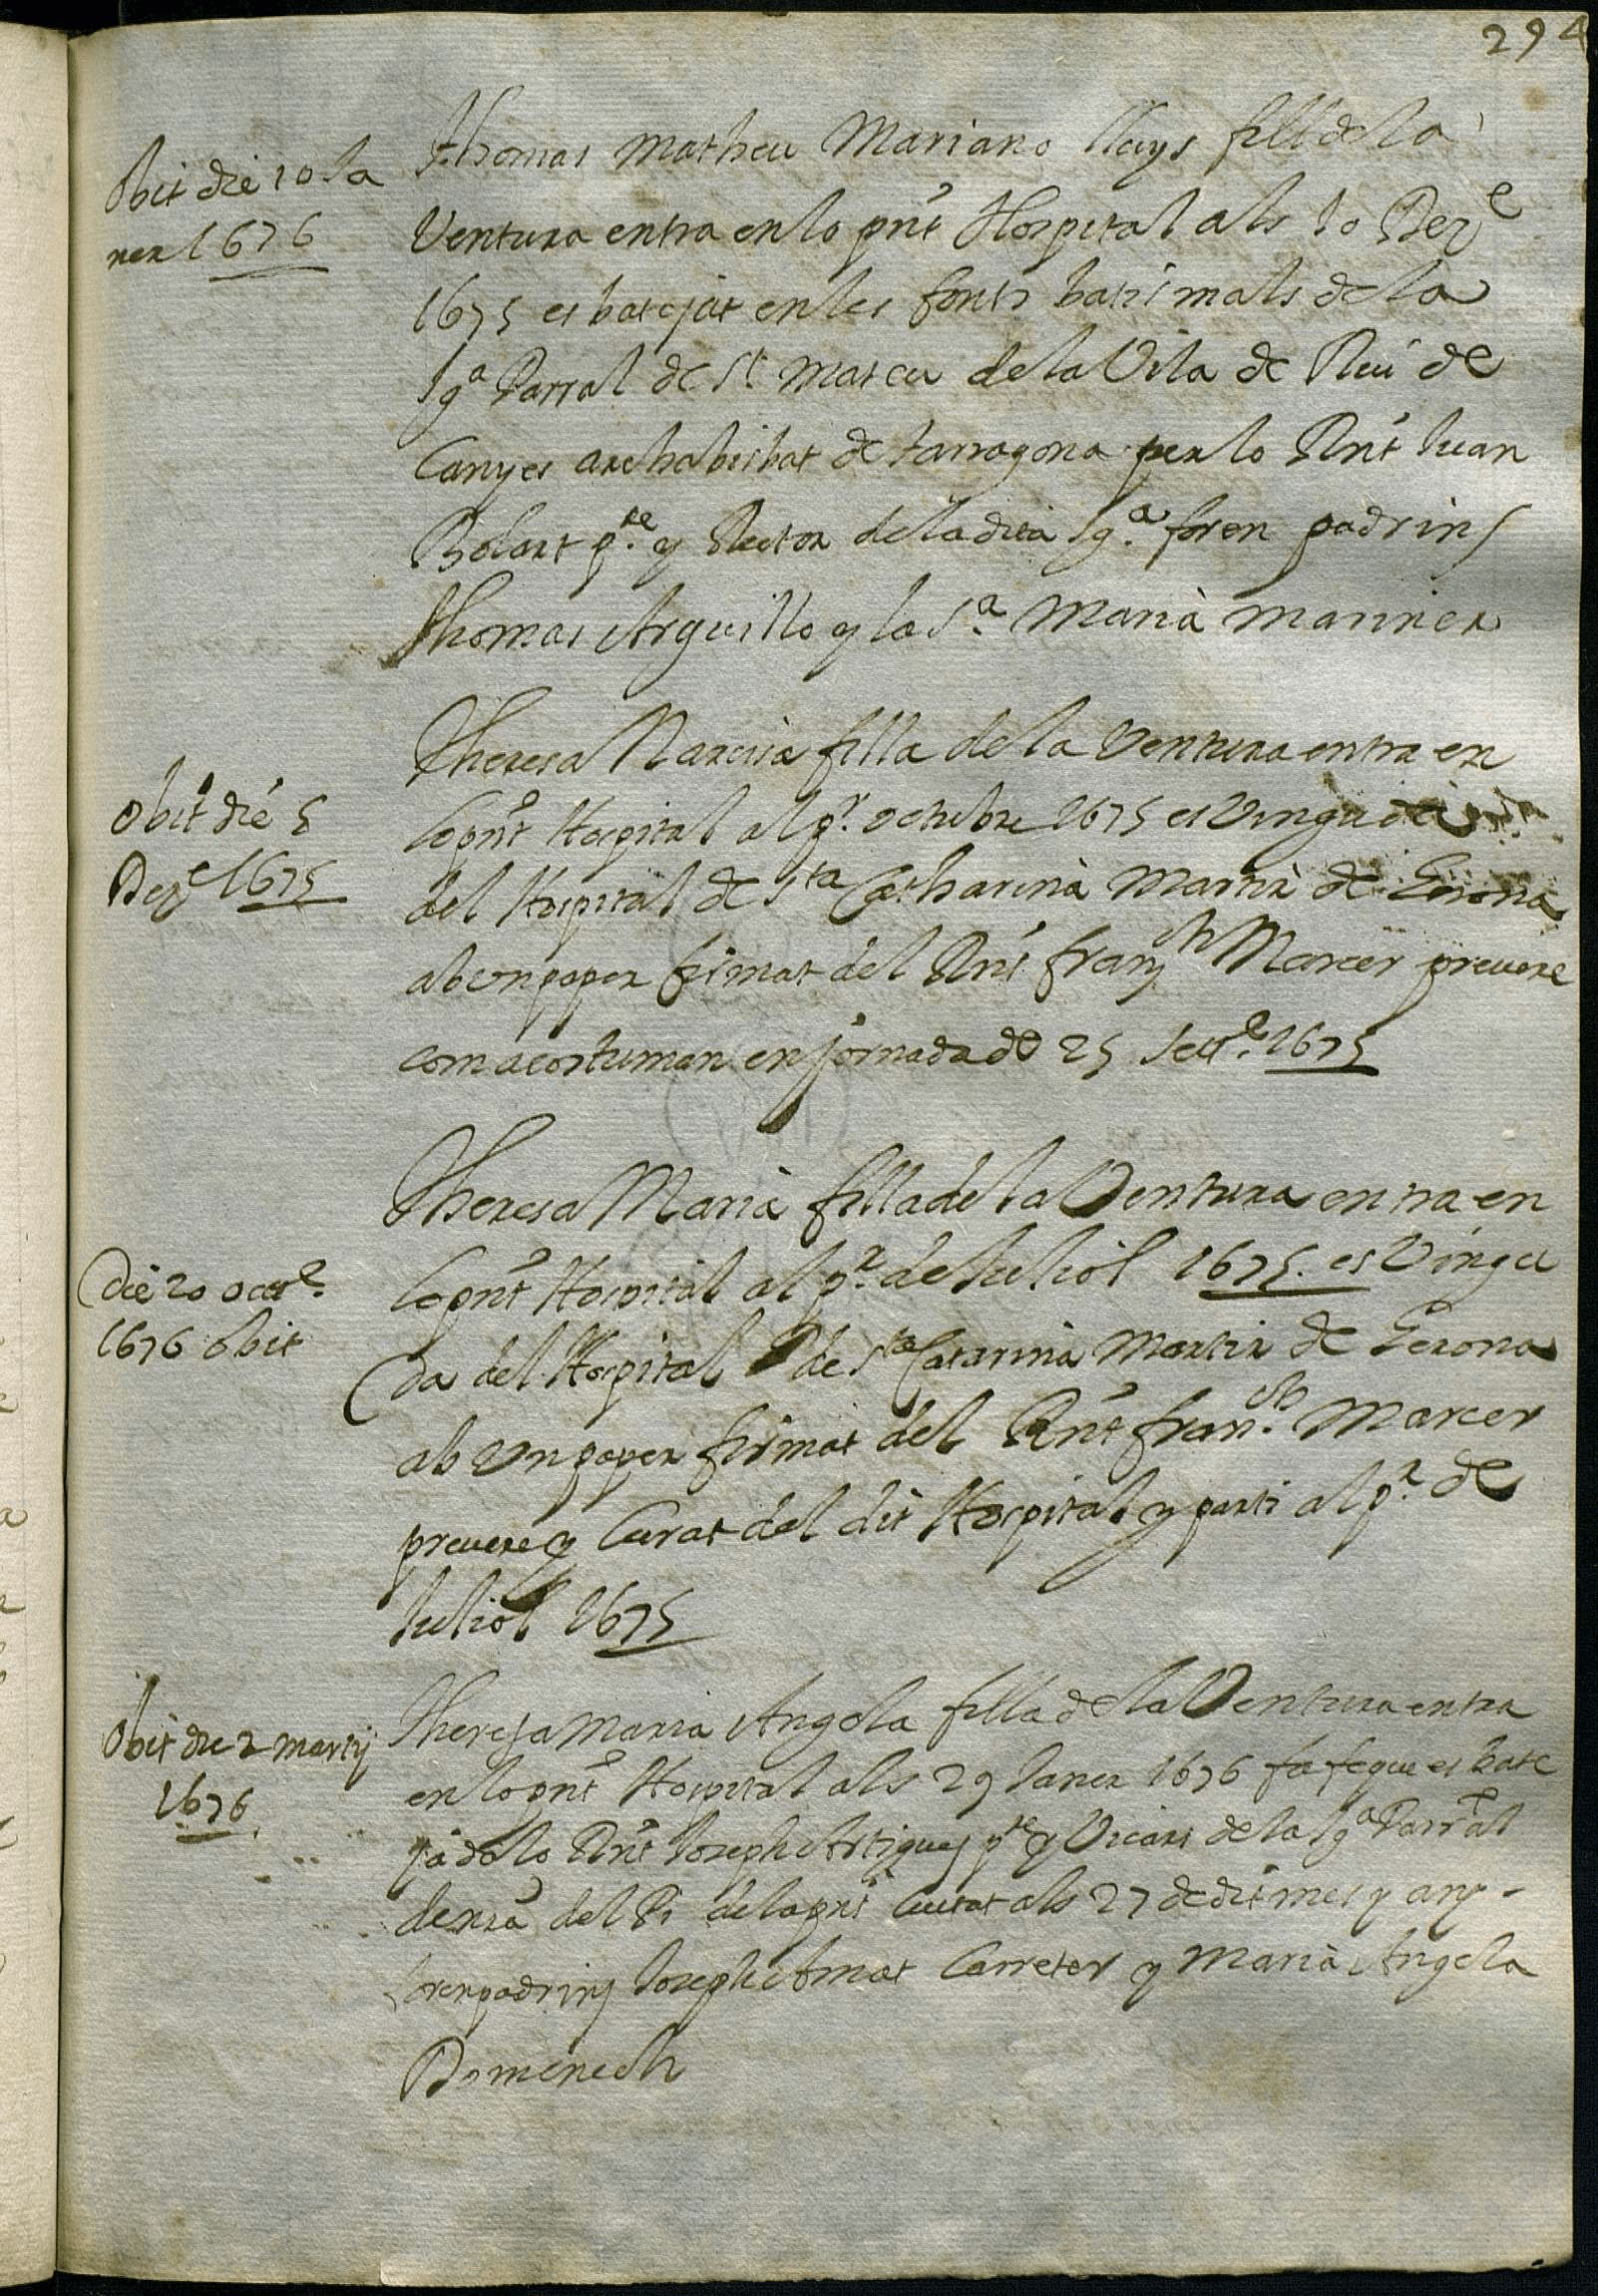 294
Obit die 10 Ja
ner 1676
Thomas Matheu Mariano lluys fill de la
Ventura entra en lo pnt Hospital als 10 Dez.e
1675 es batejat en les fonts batismals de la
Ig.a Parral de St Mateu de la Vila de de
Canyes archabisbat de tarragona per lo Rnt Juan
Bolart p.re y Rector de la dita Ig.a foren padrins
Thomas Arguillo y la S.a Maria Mariner
Obit die 5
Deze 1675
Theresa Narcisa filla de la Ventura entra en
lo pnt Hospital al pr. octubre 1675 es Vinguda
del Hospital de Sta Catharina Martir de Gerona
ab un paper firmat del Rnt Franch Marcer prevere
com acostuman en jornada de 25 Setre. 1675
Die 20 octre.
1676 obit
Theresa Maria filla de la Ventura entra en
lo pnt Hospital al pr. de Juliol 1675. es Vingu
da del Hospital de Sta Catarina Martir de Gerona
ab Un paper firmat del Rnt Fran.ch Marcer
prevere y Curat del dit Hospital y parti al pr. de
Juliol 1675
Obit die 2 martij
1676
Theresa Maria Angela filla de la Ventura entra
en lo pnt Hospital als 29 Janer 1676 fa fe que es bate
ja de lo Rnt Joseph Artigues pre y Vicari de la Iga Parral
de nra del Pi de la pnt Ciutat als 27 de dit mes y any -
foren padrins Joseph Amat Carreter y Maria Angela
Domenech